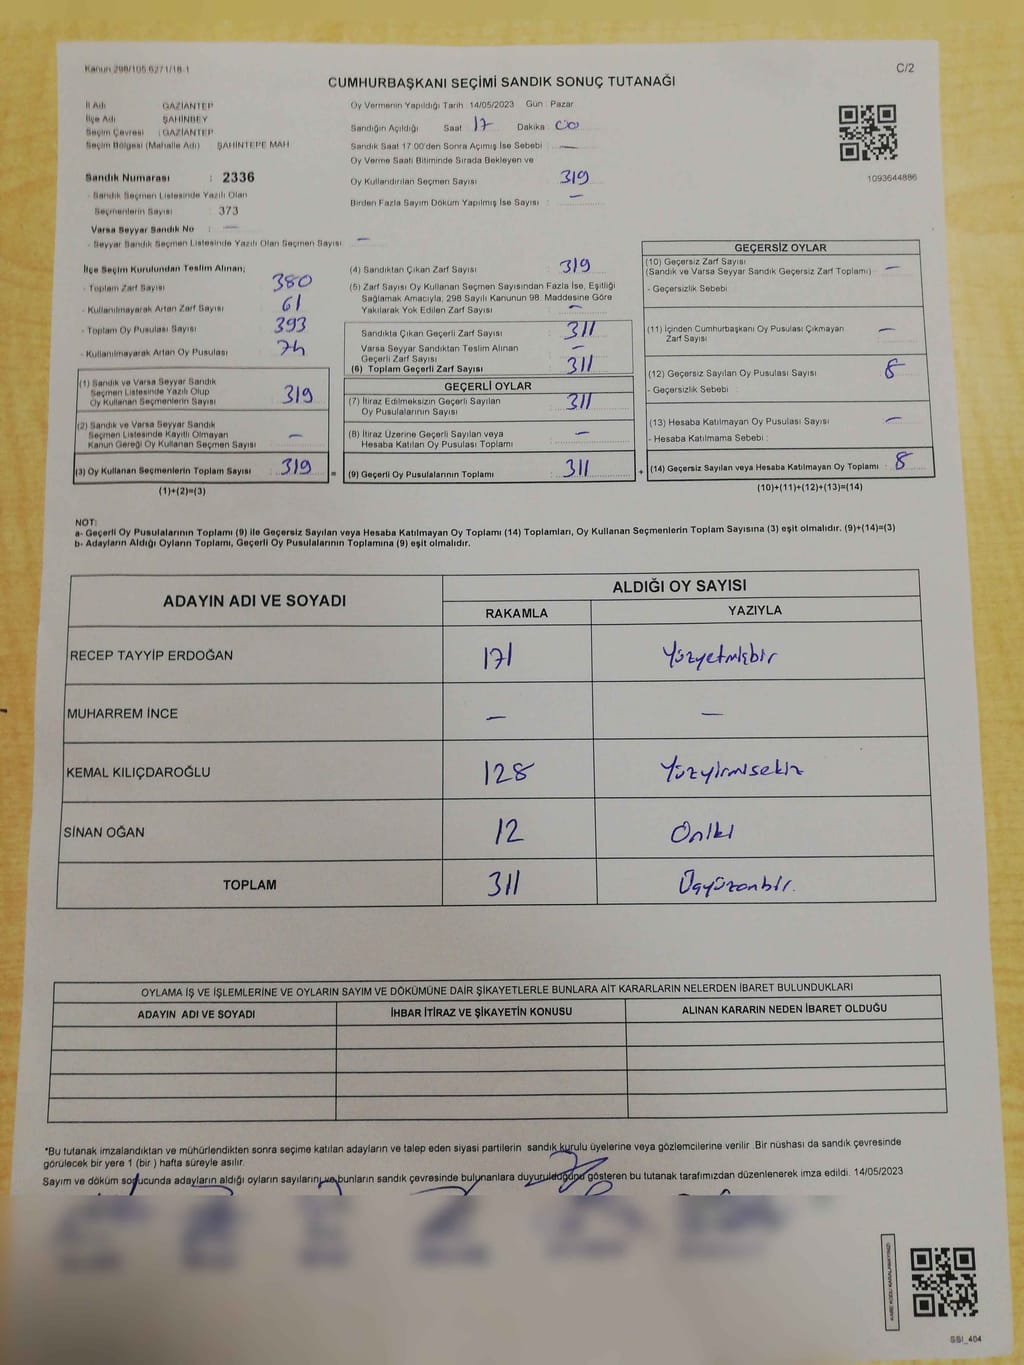 Kanun 298/105 6271/18 1
C/2
CUMHURBAŞKANI SEÇİMİ SANDIK SONUÇ TUTANAĞI
İl Adı GAZİANTEP
İlçe Adı ŞAHİNBEY
Seçim Çevresi : GAZİANTEP
Seçim Bölgesi (Mahalle Adı) ŞAHİNTEPE MAH
Sandık Numarası : 2336
- Sandık Seçmen Listesinde Yazılı Olan
Seçmenlerin Sayısı : 373
Varsa Seyyar Sandık No : —
- Seyyar Sandık Seçmen Listesinde Yazılı Olan Seçmen Sayısı : —
Oy Vermenin Yapıldığı Tarih 14/05/2023 Gün : Pazar
Sandığın Açıldığı Saat 17 Dakika 00
Sandık Saat 17 00'den Sonra Açımış İse Sebebi —
Oy Verme Saati Bitiminde Sırada Bekleyen ve
Oy Kullandırılan Seçmen Sayısı 319
Birden Fazla Sayım Döküm Yapılmış İse Sayısı : —
1093644886
İlçe Seçim Kurulundan Teslim Alınan;
- Toplam Zarf Sayısı 380
- Kullanılmayarak Artan Zarf Sayısı 61
- Toplam Oy Pusulası Sayısı 393
- Kullanılmayarak Artan Oy Pusulası 74
(1) Sandık ve Varsa Seyyar Sandık
Seçmen Listesinde Yazılı Olup
Oy Kullanan Seçmenlerin Sayısı 319
(2) Sandık ve Varsa Seyyar Sandık
Seçmen Listesinde Kayıtlı Olmayan
Kanun Gereği Oy Kullanan Seçmen Sayısı —
(3) Oy Kullanan Seçmenlerin Toplam Sayısı 319 =
(1)+(2)=(3)
(4) Sandıktan Çıkan Zarf Sayısı 319
(5) Zarf Sayısı Oy Kullanan Seçmen Sayısından Fazla İse, Eşitliği
Sağlamak Amacıyla, 298 Sayılı Kanunun 98. Maddesine Göre
Yakılarak Yok Edilen Zarf Sayısı —
Sandıkta Çıkan Geçerli Zarf Sayısı 311
Varsa Seyyar Sandıktan Teslim Alınan
Geçerli Zarf Sayısı —
(6) Toplam Geçerli Zarf Sayısı 311
GEÇERLİ OYLAR
(7) İtiraz Edilmeksizin Geçerli Sayılan
Oy Pusulalarının Sayısı 311
(8) İtiraz Üzerine Geçerli Sayılan veya
Hesaba Katılan Oy Pusulası Toplamı —
(9) Geçerli Oy Pusulalarının Toplamı 311 +
GEÇERSİZ OYLAR
(10) Geçersiz Zarf Sayısı
(Sandık ve Varsa Seyyar Sandık Geçersiz Zarf Toplamı) —
- Geçersizlik Sebebi :
(11) İçinden Cumhurbaşkanı Oy Pusulası Çıkmayan
Zarf Sayısı —
(12) Geçersiz Sayılan Oy Pusulası Sayısı 8
- Geçersizlik Sebebi :
(13) Hesaba Katılmayan Oy Pusulası Sayısı —
- Hesaba Katılmama Sebebi :
(14) Geçersiz Sayılan veya Hesaba Katılmayan Oy Toplamı : 8
(10)+(11)+(12)+(13)=(14)
NOT:
a- Geçerli Oy Pusulalarının Toplamı (9) ile Geçersiz Sayılan veya Hesaba Katılmayan Oy Toplamı (14) Toplamları, Oy Kullanan Seçmenlerin Toplam Sayısına (3) eşit olmalıdır. (9)+(14)=(3)
b- Adayların Aldığı Oyların Toplamı, Geçerli Oy Pusulalarının Toplamına (9) eşit olmalıdır.
ADAYIN ADI VE SOYADI ALDIĞI OY SAYISI
RAKAMLA YAZIYLA
RECEP TAYYİP ERDOĞAN 171 Yüzyetmişbir
MUHARREM İNCE — —
KEMAL KILIÇDAROĞLU 128 Yüzyirmisekiz
SİNAN OĞAN 12 Oniki
TOPLAM 311 Üçyüzonbir.
OYLAMA İŞ VE İŞLEMLERİNE VE OYLARIN SAYIM VE DÖKÜMÜNE DAİR ŞİKAYETLERLE BUNLARA AİT KARARLARIN NELERDEN İBARET BULUNDUKLARI
ADAYIN ADI VE SOYADI İHBAR İTİRAZ VE ŞİKAYETİN KONUSU ALINAN KARARIN NEDEN İBARET OLDUĞU
*Bu tutanak imzalandıktan ve mühürlendikten sonra seçime katılan adayların ve talep eden siyasi partilerin sandık kurulu üyelerine veya gözlemcilerine verilir. Bir nüshası da sandık çevresinde
görülecek bir yere 1 (bir ) hafta süreyle asılır.
Sayım ve döküm sonucunda adayların aldığı oyların sayılarını ve bunların sandık çevresinde bulunanlara duyurulduğunu gösteren bu tutanak tarafımızdan düzenlenerek imza edildi. 14/05/2023
KARE KODU KARALAMAYINIZ!
SSI_404